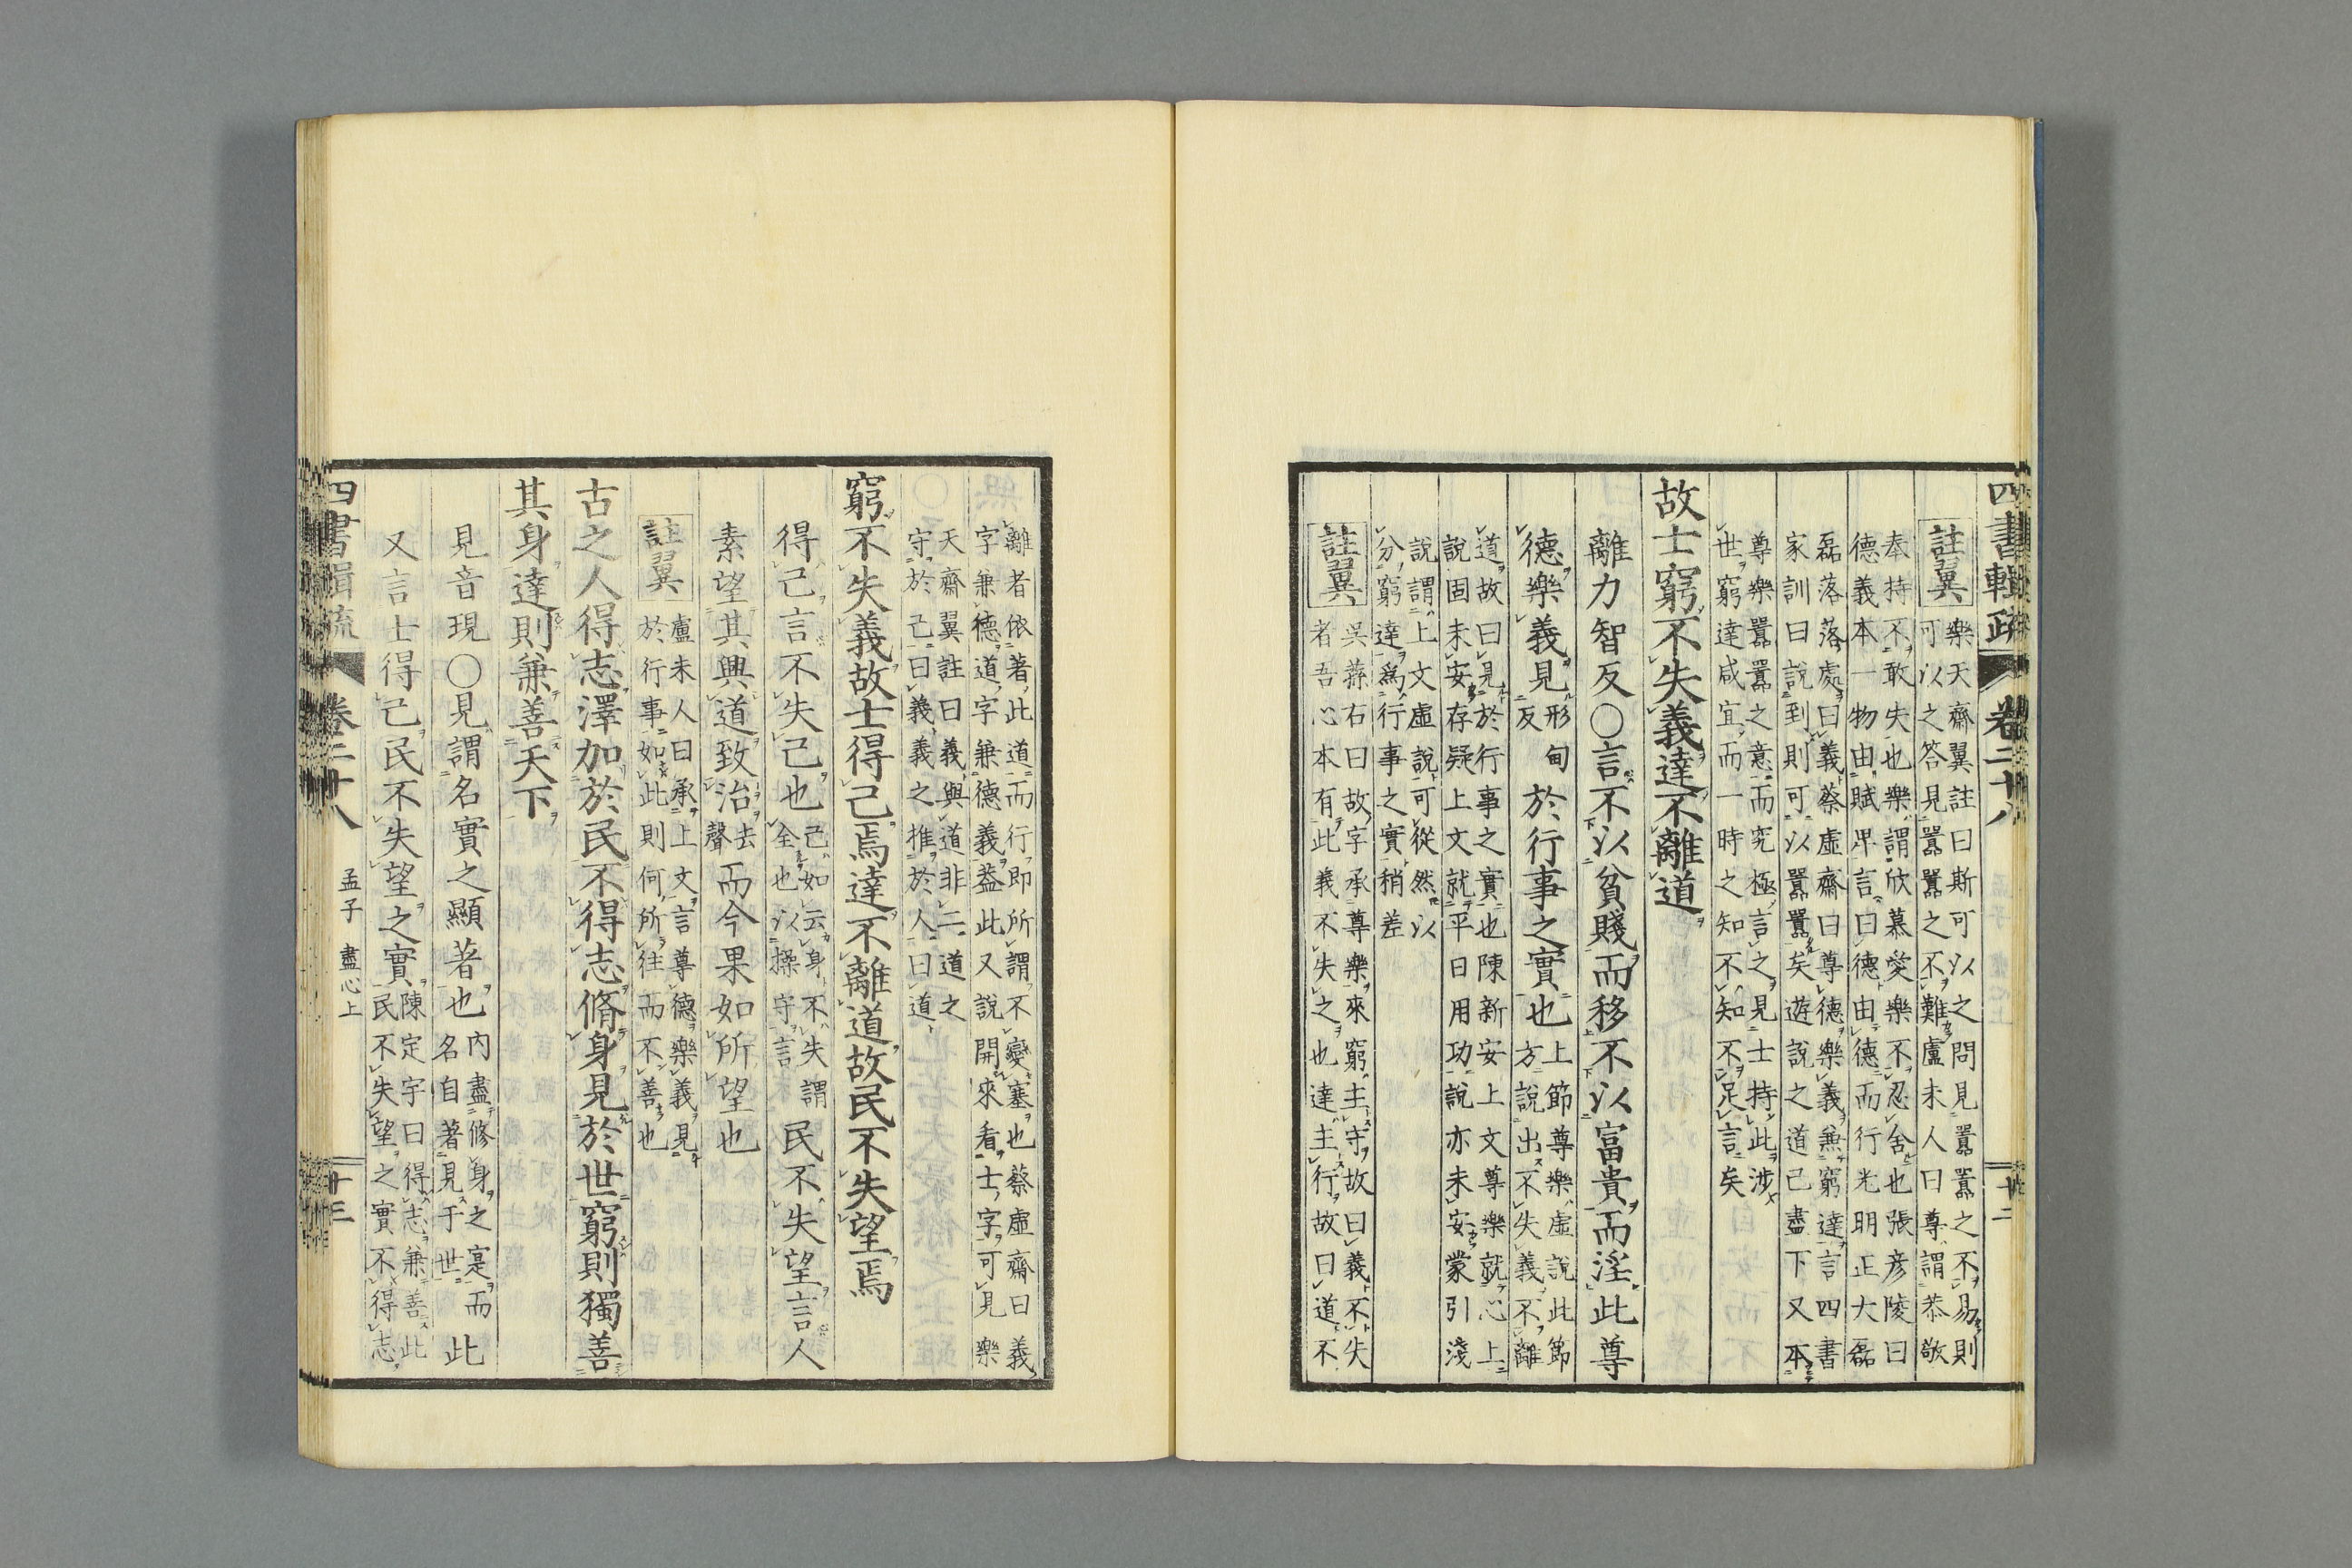 四書輯疏 卷二十八 十二
註翼
樂天齋翼註曰斯可以之問見囂囂之不易則
可以之答見囂囂之不難盧未人曰尊謂恭敬
奉持不敢失也樂謂欣慕愛樂不忍舍也張彥陵曰
德義本一物由賦畀言曰德由德而行光明正大磊
磊落落處曰義蔡虛齋曰尊德樂義兼窮達言四書
家訓曰說到則可以囂囂矣遊說之道已盡下又本
尊樂囂囂之意而究極言之見士持此涉
世窮達咸宜而一時之知不知不足言矣
故士窮不失義達不離道
離力智反〇言不以貧賤而移不以富貴而淫此尊
德樂義見形甸反於行事之實也上節尊樂虛說此節
方說出不失義不離
道故曰見於行事之實也陳新安上文尊樂就心上
說固未安存疑上文就平日用功說亦未安蒙引淺
說謂上文虛說可從然以
分窮達為行事之實稍差
註翼
吳蓀右曰故字承尊樂來窮主守故曰義不失
者吾心本有此義不失之也達主行故曰道不
離者依著此道而行即所謂不變塞也蔡虛齋曰義
字兼德道字兼德義益此又說開來看士字可見樂
天齋翼註曰義與道非二道之
守於己曰義義之推於人曰道
窮不失義故士得己焉達不離道故民不失望焉
得己言不失己也己如云身不失謂
全也以操守言民不失望言人
素望其興道致治去聲而今果如所望也
註翼
盧未人曰承上文言尊德樂義見
於行事如此則何所往而不善也
古之人得志澤加於民不得志脩身見於世窮則獨善
其身達則兼善天下
見音現〇見謂名實之顯著也內盡修身之寔而
名自著見于世此
又言士得己民不失望之實陳定宇曰得志兼善此
民不失望之實不得志
四書輯疏 卷二十八 孟子 盡心上 十三